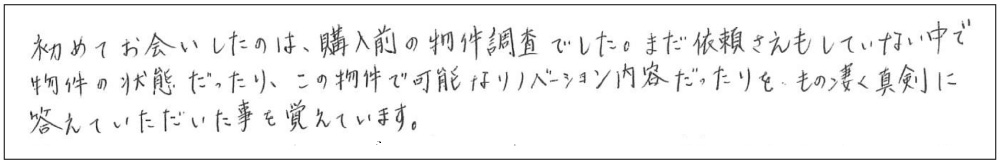 初めてお会いしたのは、購入前の物件調査でした。まだ依頼さえもしていない中で
物件の状態だったり、この物件で可能なリノベーション内容だったりを、もの凄く真剣に
答えていただいた事を覚えています。